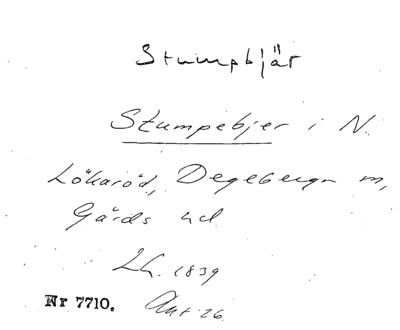 Stumpbjär
Stumpebjer i N.
Lökaröd, Degeberga m,
Gärds hd
Lh. 1839
Nr 7710. Akt 26.